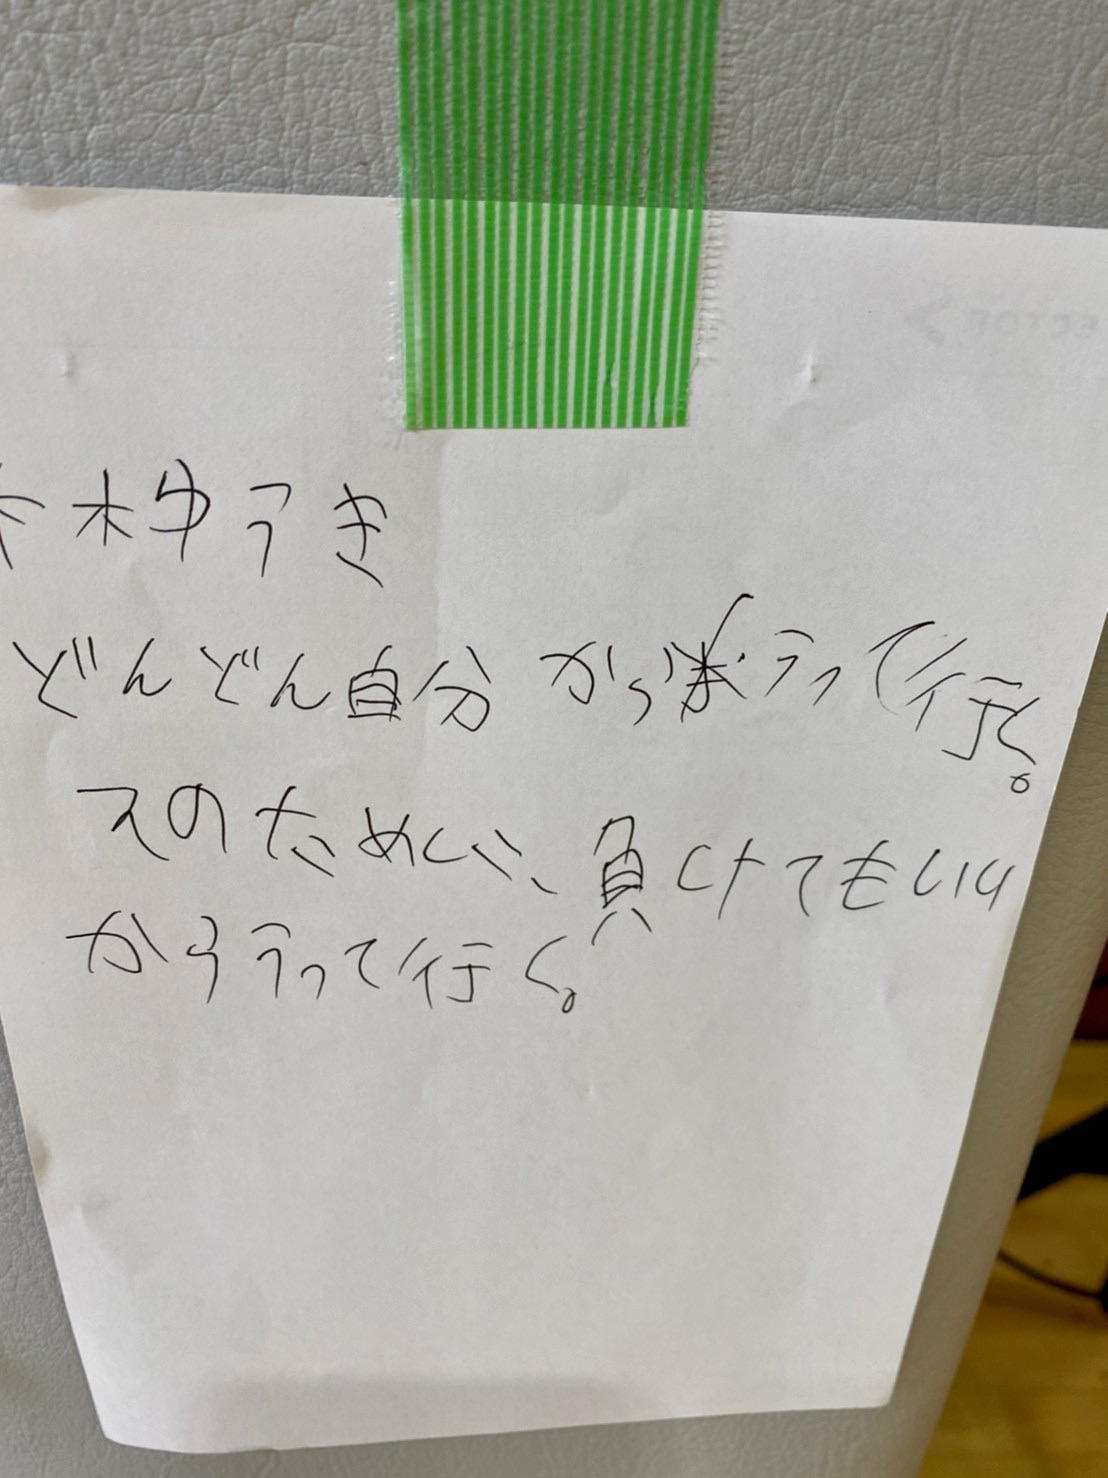 木ゆうき
どんどん自分から うって行く。
そのために、負けてもいい
からうって行く。